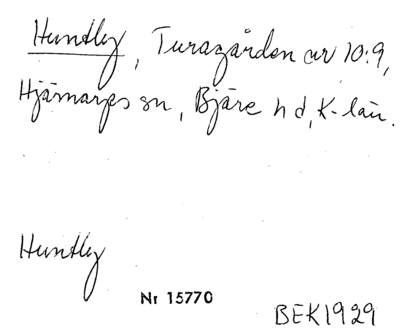 Huntley, Turagården av 10:9,
Hjärnarps sn, Bjäre hd, K-län.
Huntley
Nr 15770
BEK1929